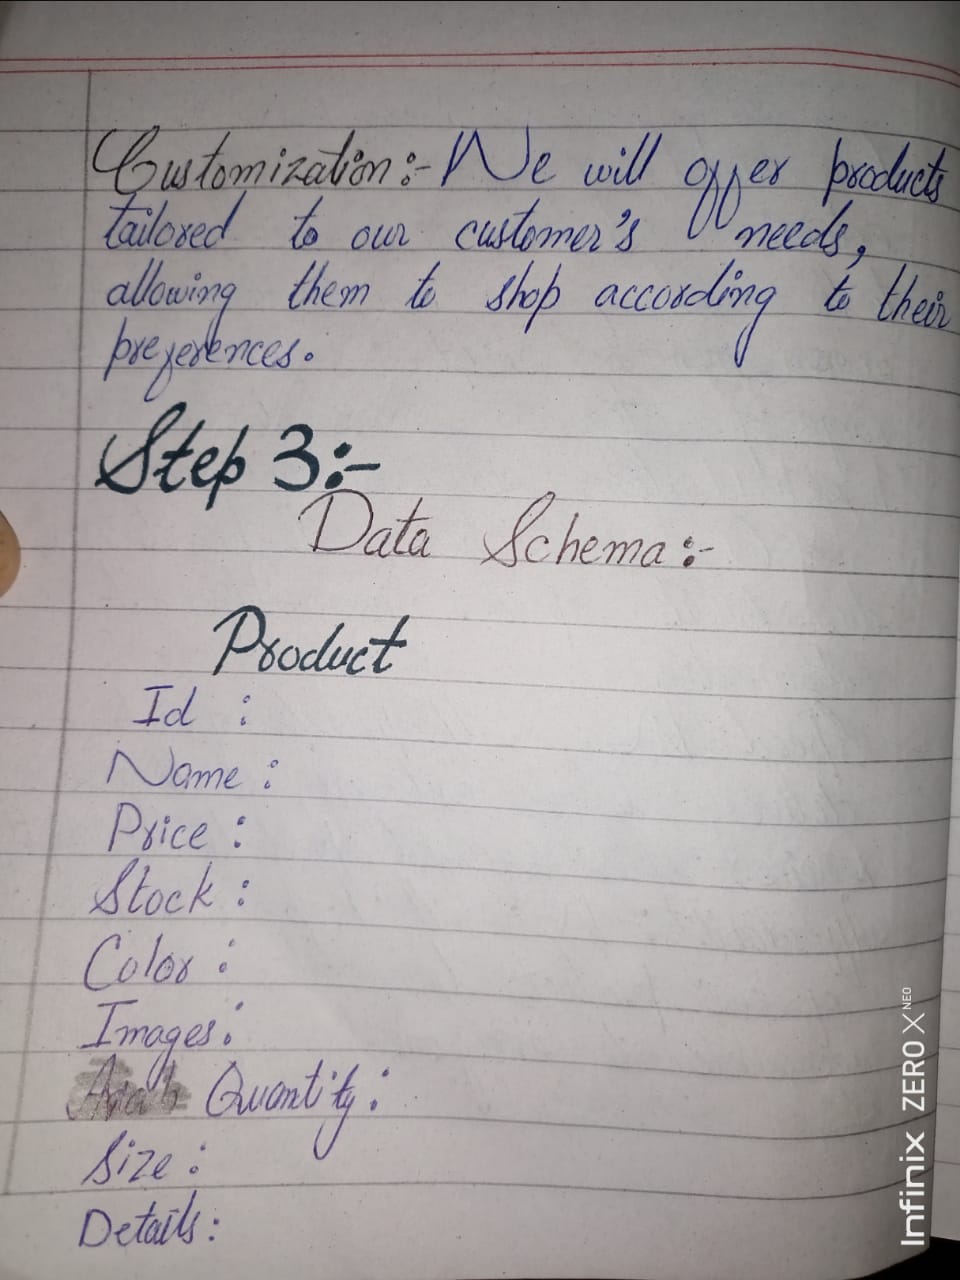 Customization:- We will offer products
tailored to our customer's needs,
allowing them to shop according to their
preferences.
Step 3:-
Data Schema:-
Product
Id :
Name :
Price :
Stock :
Color :
Images :
Quantity :
Size :
Details :
Infinix ZERO X NEO